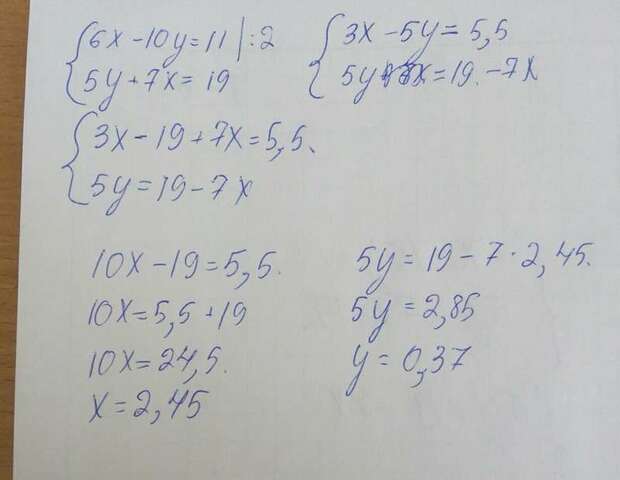 6x - 10y = 11 | : 2
5y + 7x = 19
3x - 5y = 5,5
5y = 19 - 7x
3x - 19 + 7x = 5,5
5y = 19 - 7x
10x - 19 = 5,5
10x = 5,5 + 19
10x = 24,5
x = 2,45
5y = 19 - 7 · 2,45
5y = 2,85
y = 0,37